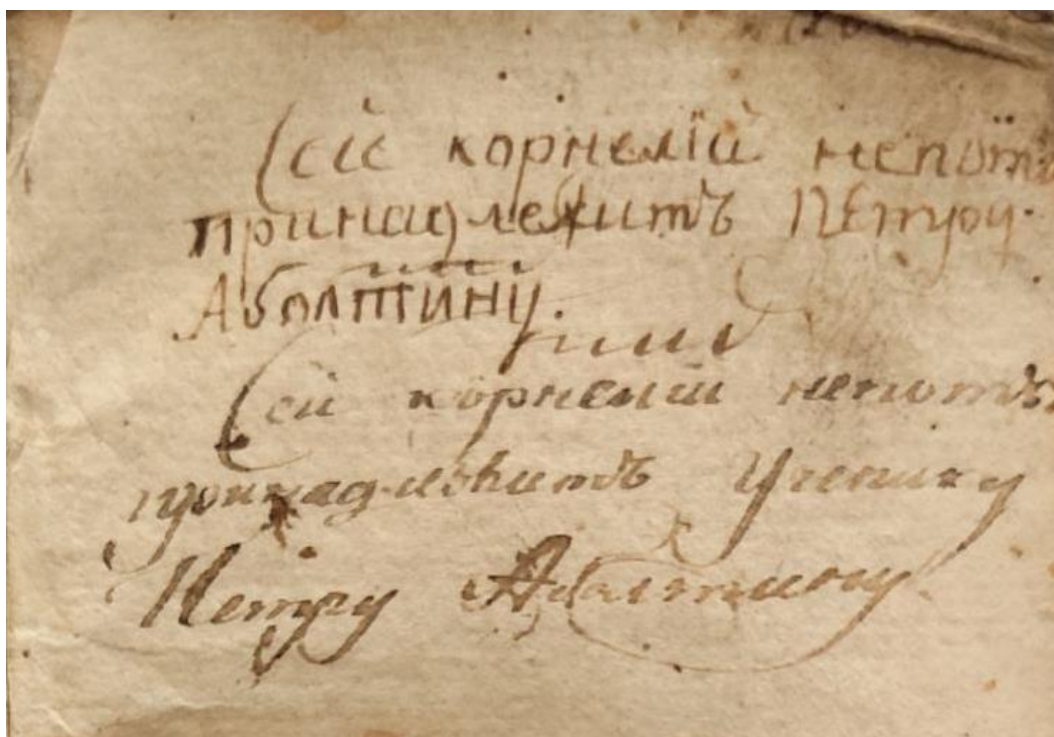 Сей корнелїй непотъ
принадлежитъ Петру
Аболтину.
Сей корнелій непотъ
принадлѣжитъ Ученику
Петру Аболтину.